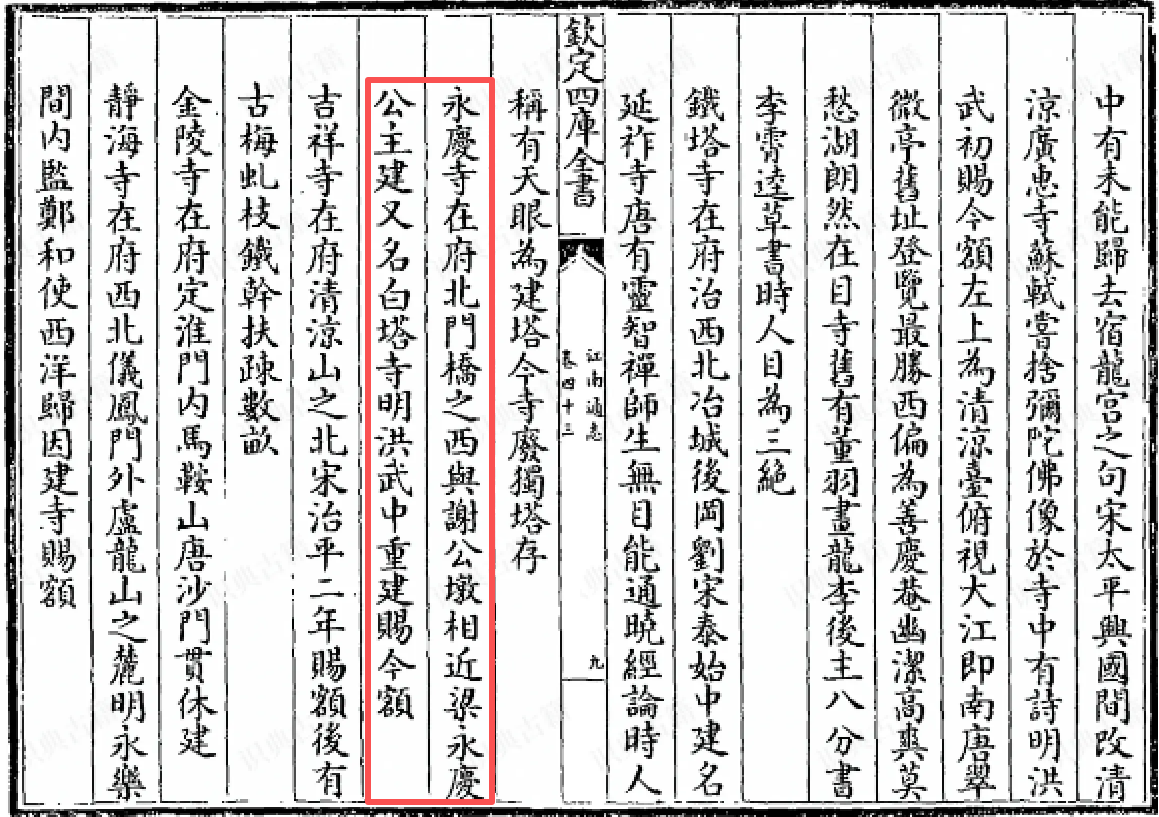 中有未能歸去宿龍宮之句宋太平興國間改清
涼廣惠寺蘇軾嘗捨彌陀佛像於寺中有詩明洪
武初賜今額左上為清涼臺俯視大江即南唐翠
微亭舊址登覽最勝西偏為善慶菴幽潔高爽莫
愁湖朗然在目寺舊有董羽畫龍李後主八分書
李霄逺草書時人目為三絶
鐵塔寺在府治西北冶城後岡劉宋泰始中建名
延祚寺唐有靈智禪師生無目能通曉經論時人
欽定四庫全書
江南通志
卷四十三
九
稱有天眼為建塔今寺廢獨塔存
永慶寺在府北門橋之西與謝公墩相近梁永慶
公主建又名白塔寺明洪武中重建賜今額
吉祥寺在府清涼山之北宋治平二年賜額後有
古梅虬枝鐵幹扶疎數畝
金陵寺在府定淮門内馬鞍山唐沙門貫休建
靜海寺在府西北儀鳳門外盧龍山之麓明永樂
間内監鄭和使西洋歸因建寺賜額